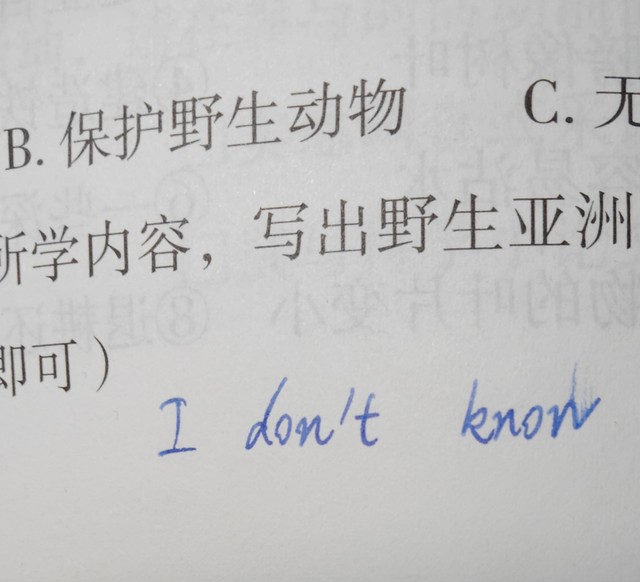 B. 保护野生动物 C. 无
所学内容，写出野生亚洲
即可）
I don't know